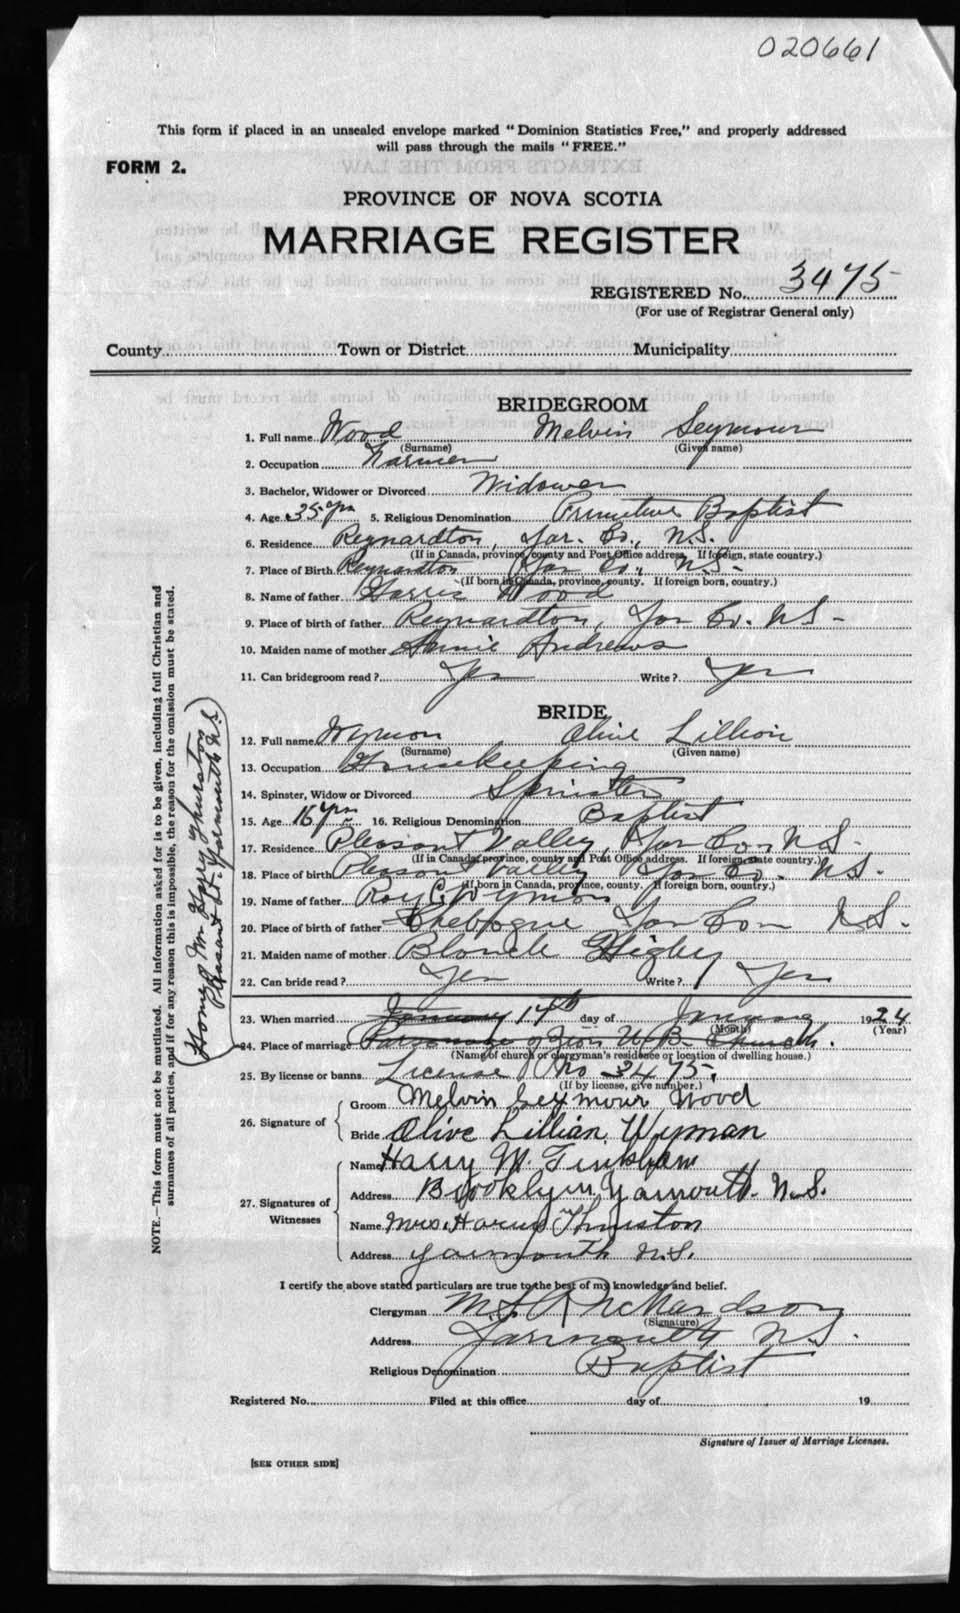 020661
This form if placed in an unsealed envelope marked "Dominion Statistics Free," and properly addressed
will pass through the mails "FREE."
FORM 2.
PROVINCE OF NOVA SCOTIA
MARRIAGE REGISTER
REGISTERED No. 3475
(For use of Registrar General only)
County Town or District Municipality
BRIDEGROOM
1. Full name Wood Melvin Seymour
(Surname) (Given name)
2. Occupation Farmer
3. Bachelor, Widower or Divorced Widower
4. Age 35 yrs 5. Religious Denomination Primitive Baptist
6. Residence Reynardton, Yar. Co., N.S.
(If in Canada, province, county and Post Office address. If foreign, state country.)
7. Place of Birth Reynardton Yar Co. N.S.
(If born in Canada, province, county. If foreign born, country.)
8. Name of father Harris Wood
9. Place of birth of father Reynardton, Yar Co. N.S.
10. Maiden name of mother Annie Andrews
11. Can bridegroom read? Yes Write? Yes
BRIDE
12. Full name Wyman Olive Lillian
(Surname) (Given name)
13. Occupation Housekeeping
14. Spinster, Widow or Divorced Spinster
15. Age 16 yrs 16. Religious Denomination Baptist
17. Residence Pleasant Valley, Yar Co. N.S.
(If in Canada, province, county and Post Office address. If foreign, state country.)
18. Place of birth Pleasant Valley Yar Co. N.S.
(If born in Canada, province, county. If foreign born, country.)
19. Name of father Roy C. Wyman
20. Place of birth of father Chebogue Yar Com N.S.
21. Maiden name of mother Blanche
22. Can bride read? Yes Write? Yes
23. When married January 14th day of January 1924
(Month) (Year)
24. Place of marriage Parsonage of Zion U.B. Church.
(Name of church or clergyman's residence or location of dwelling house.)
25. By license or banns License No 3475.
(If by license, give number.)
26. Signature of
Groom Melvin Seymour Wood
Bride Olive Lillian Wyman
27. Signatures of
Witnesses
Name Harry M. Tinkham
Address Brooklyn Yarmouth. N.S.
Name Mrs. Thurston
Address Yarmouth N.S.
I certify the above stated particulars are true to the best of my knowledge and belief.
Clergyman
(Signature)
Address Yarmouth N.S.
Religious Denomination Baptist
Registered No. Filed at this office day of 19
Signature of Issuer of Marriage Licenses.
[SEE OTHER SIDE]
NOTE.—This form must not be mutilated. All information asked for is to be given, including full Christian and
surnames of all parties, and if for any reason this is impossible, the reason for the omission must be stated.
(Home of Mr Harry Thurston
Pleasant St. Yarmouth N.S.)